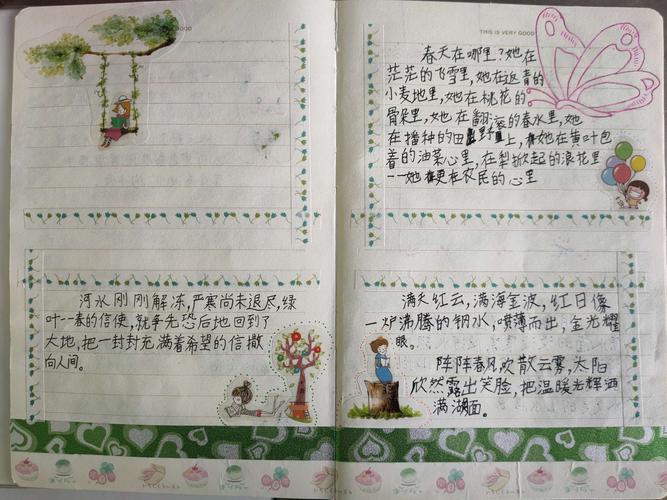 河水刚刚解冻,严寒尚未退尽,绿
叶--春的信使,就争先恐后地回到了
大地,把一封封充满着希望的信撒
向人间。
THIS IS VERY GOOD
春天在哪里?她在
茫茫的飞雪里,她在返青的
小麦地里,她在桃花的
骨朵里,她在翻滚的春水里,她
在播种的田野里上,她在黄叶包
着的油菜心里,在犁掀起的浪花里
--她更在农民的心里
满天红云,满海金波,红日像
一炉沸腾的钢水,喷薄而出,金光耀
眼。
阵阵春风吹散云雾,太阳
欣然露出笑脸,把温暖光辉洒
满湖面。